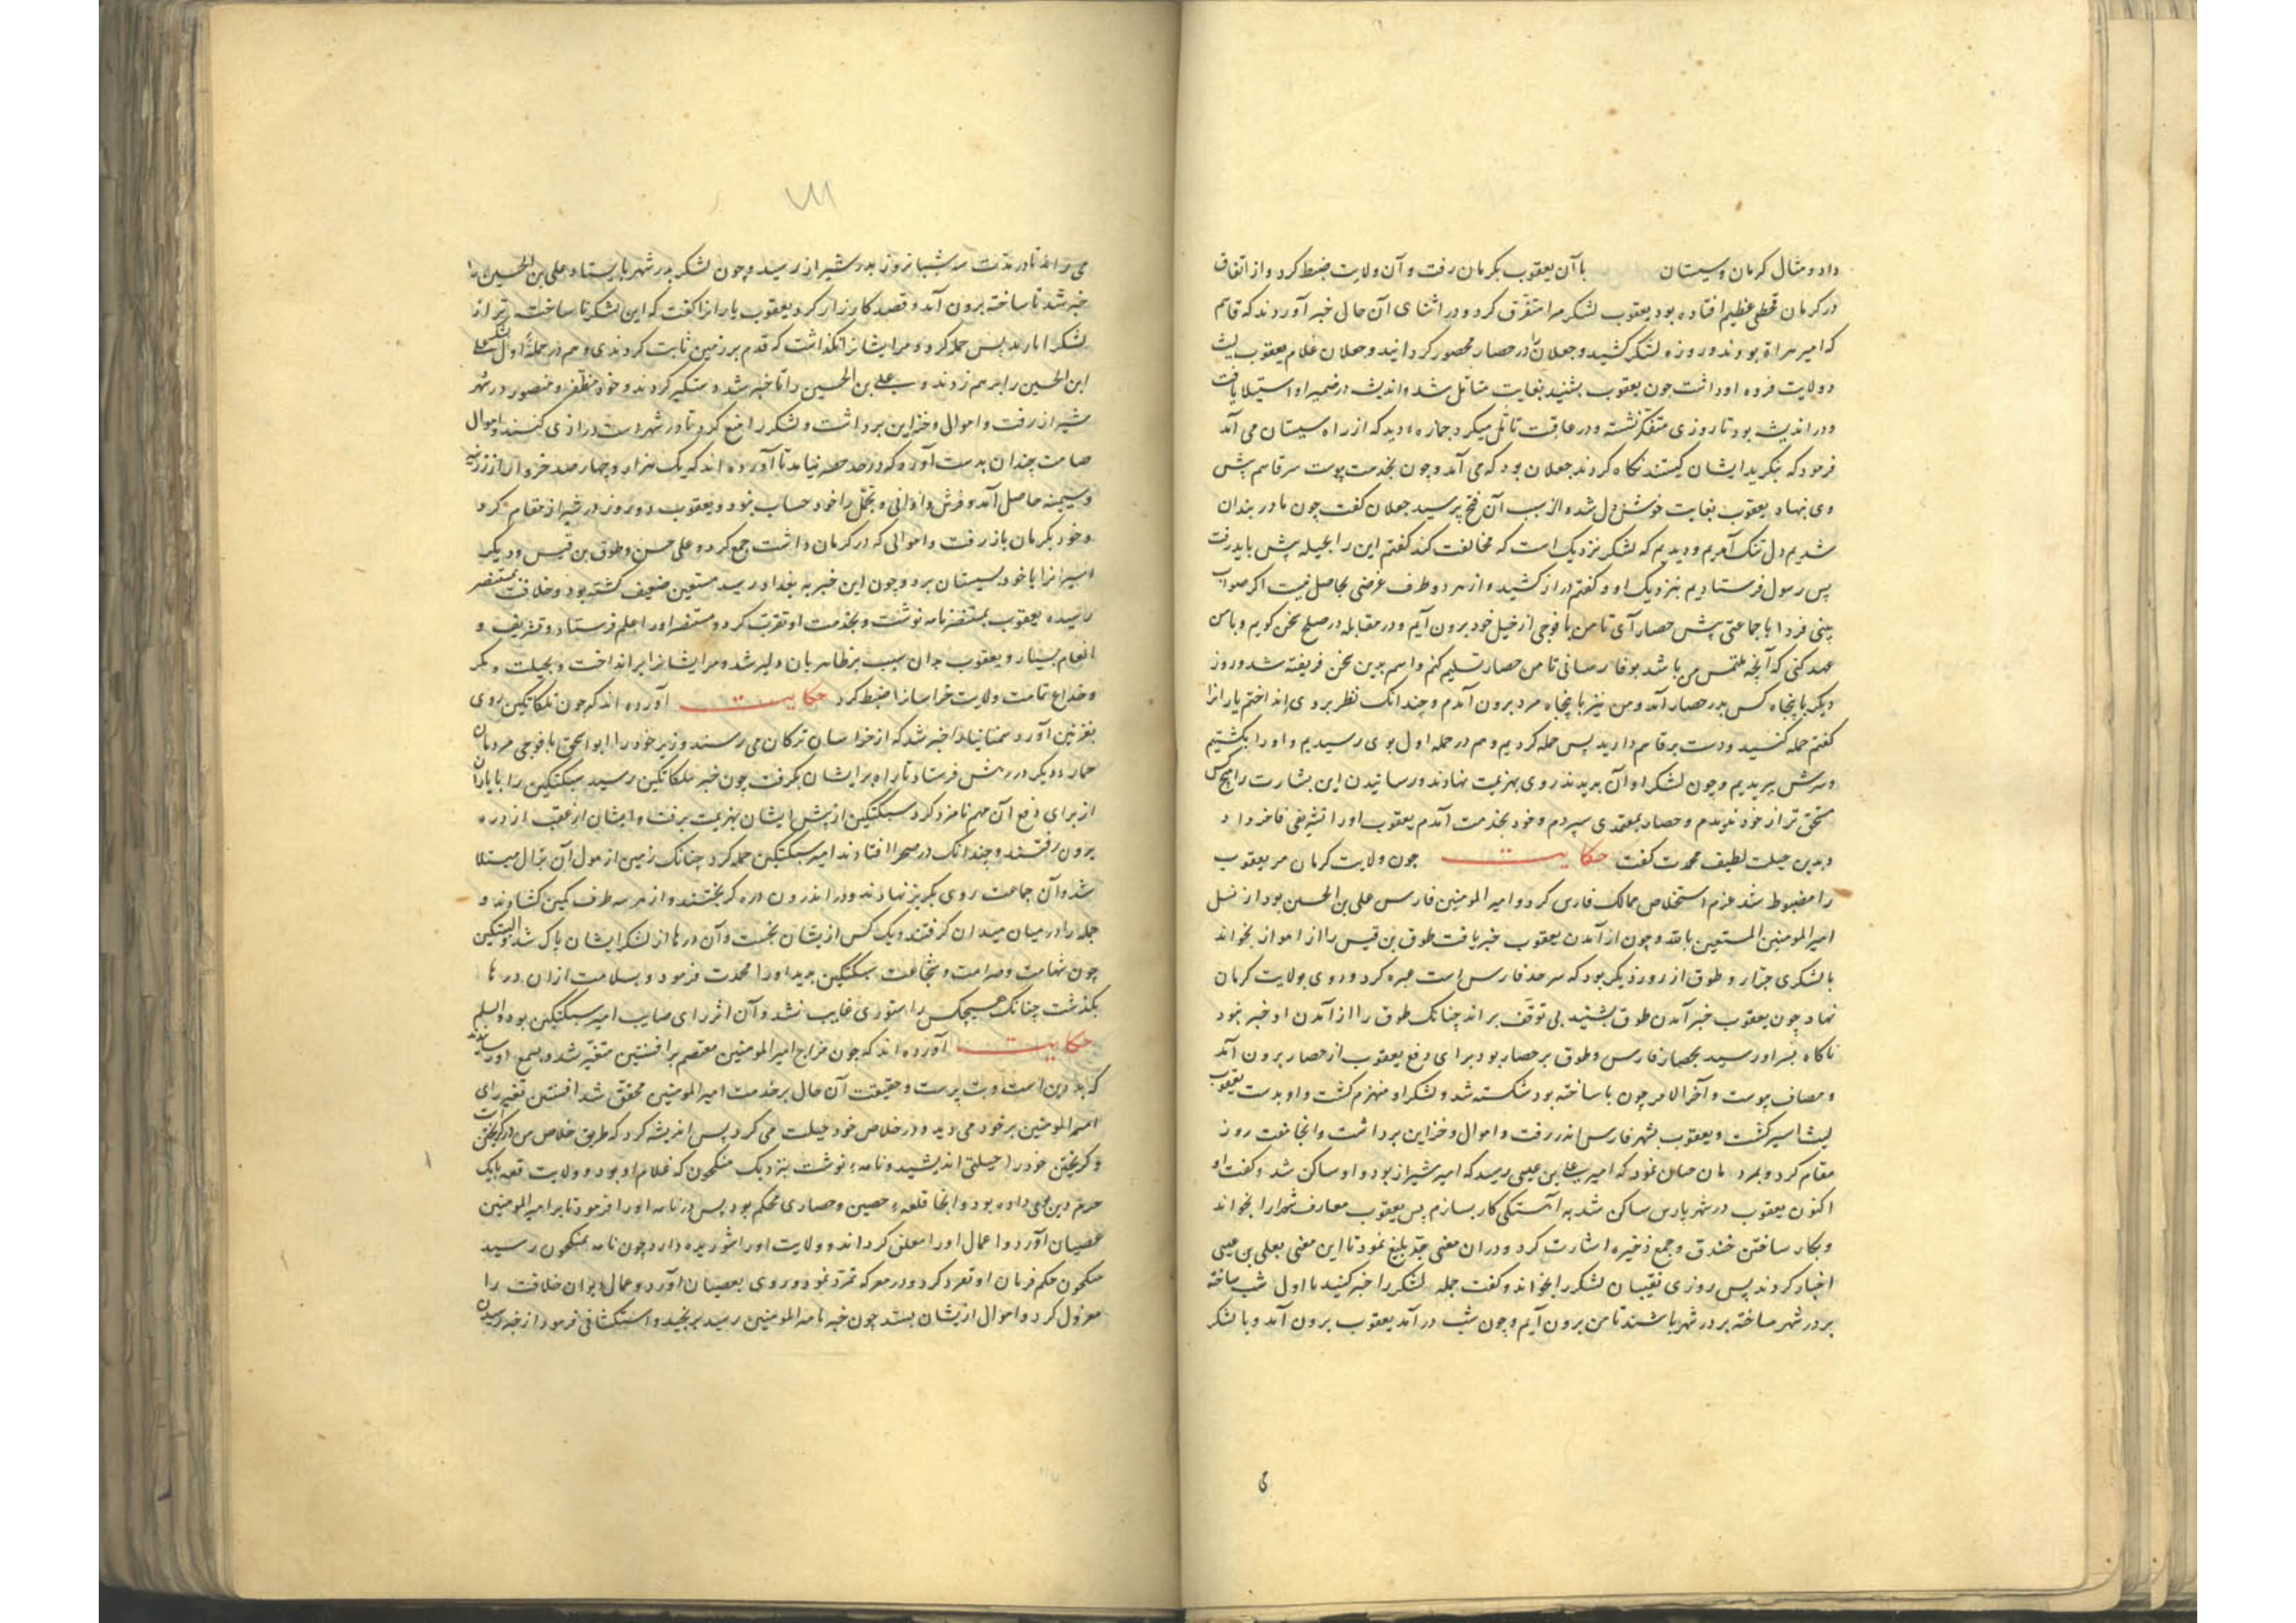 داد و مثال کرمان و سیستان با آن یعقوب بکرمان رفت و آن ولایت ضبط کرد و از اتفاق
در کرمان قحطی عظیم افتاده بود یعقوب لشکر متفرق کرد و در اثنای آن حال خبر آوردند که قاسم
که امیر هراة بود لشکر کشید و جعلان را در حصار محصور گردانید و جعلان غلام یعقوب لیث
و ولایت فره او داشت چون یعقوب بشنید بغایت متامل شد و اندیشه در ضمیر او استیلا یافت
و در اندیشه بود تا روزی متفکر نشسته و در عاقبت تامل میکرد جمازه دید که از راه سیستان می آمد
فرمود که بنگرید ایشان کیستند نگاه کردند جعلان بود که می آمد و چون بخدمت پیوست سر قاسم پیش
وی نهاد یعقوب بغایت خوش دل شد و از سبب آن فتح پرسید جعلان گفت چون ما در بندان
شدیم دل تنگ آمدیم و دیدیم که لشکر نزدیک است که مخالفت کند گفتم این را بحیله پیش باید رفت
پس رسول فرستادیم بنزدیک او و گفتم دراز کشید و از هر دو طرف غرضی بحاصل نیست اگر صواب
بینی فردا با جماعتی پیش حصار آی تا من با فوجی از خیل خود برون آیم و در مقابله در صلح سخن گویم و با من
عهد کنی که آنچه ملتمس من باشد بوفا رسانی تا من حصار تسلیم کنم و قاسم بدین سخن فریفته شد و روز
دیگر با پنجاه کس بدر حصار آمد و من نیز با پنجاه مرد برون آمدم و چندانک نظر بر وی انداختم یارانرا
گفتم حمله کنید و دست بر قاسم دارید پس حمله کردیم و هم در حمله اول بوی رسیدیم و او را بکشتیم
و سرش ببریدیم و چون لشکر او آن بدیدند روی بهزیمت نهادند و رسانیدن این بشارت را هیچ کس
مستحق تر از خود ندیدم و حصار بمعتمدی سپردم و خود بخدمت آمدم یعقوب او را تشریفی فاخر داد
و بدین حیلت لطیف محمدت گفت حکایت چون ولایت کرمان مر یعقوب
را مضبوط شد عزم استخلاص ممالک فارس کرد و امیر المومنین فارس علی بن الحسین بود از نسل
امیر المومنین المستعین بالله و چون از آمدن یعقوب خبر یافت طوق بن قیس را از اهواز بخواند
با لشکری جرار و طوق از رود دیگر بود که سر حد فارس است عبره کرد و روی بولایت کرمان
نهاد چون یعقوب خبر آمدن طوق بشنید بی توقف براند چنانک طوق را از آمدن او خبر نبود
ناگاه بسر او رسید بحصار فارس و طوق بر حصار بود برای دفع یعقوب از حصار برون آمد
و مصاف پیوست و آخر الامر چون ناساخته بود شکسته شد و لشکر او منهزم گشت و او بدست یعقوب
لیث اسیر گشت و یعقوب بشهر فارس اندر رفت و اموال و خزاین برداشت و آنجا هفت روز
مقام کرد و بمردمان چنان نمود که امیر علی بن عیسی رسید که امیر شیراز بود و او ساکن شد و گفت او
اکنون یعقوب در شهر پارس ساکن شد به آهستگی کار بسازم پس یعقوب معارف شهر را بخواند
و بکار ساختن خندق و جمع ذخیره اشارت کرد و در آن معنی جد بلیغ نمود تا این معنی بعلی بن عیسی
اخبار کردند پس روزی نقیبان لشکر را بخواند و گفت جمله لشکر را خبر کنید تا اول شب ساخته
بر در شهر ساخته بر در شهر باشند تا من برون آیم و چون شب در آمد یعقوب برون آمد و با لشکر
می
می راند تا در مدت سه شبانروز بدر شیراز رسید و چون لشکر بدر شهر بایستاد علی بن الحسین را
خبر شد ناساخته برون آمد و قصد کارزار کرد یعقوب یارانرا گفت که این لشکر ناساخته تر از
لشکر پس حمله کرد و مر ایشانرا نگذاشت که قدم بر زمین ثابت کردندی و هم در حمله اول لشکر علی
ابن الحسین را بر هم زدند و علی بن الحسین را تا خبر شد دستگیر کردند و خود مظفر و منصور در شهر
شیراز رفت و اموال و خزاین برداشت و لشکر را منع کرد تا در شهر دست درازی نکنند و اموال
صامت چندان بدست آورد که در حصر نیاید تا آورده اند که یک هزار و چهار صد خروار از زرینه
و سیمینه حاصل آمد و فرش و اوانی و تجمل را خود حساب نبود و یعقوب دو روز در شیراز مقام کرد
و خود بکرمان باز رفت و اموالی که در کرمان داشت جمع کرد و علی حسن و طوق بن قیس و دیگر
اسیرانرا با خود بسیستان برد و چون این خبر به بغداد رسید مستعین ضعیف گشته بود و خلافت بمنتصر
رسیده یعقوب بمنتصر نامه نوشت و بخدمت او تقرب کرد و منتصر او را علم فرستاد و تشریف و
انعام بسیار و یعقوب بدان سبب بر طاهریان دلیر شد و مر ایشانرا بر انداخت و بحیلت و مکر
و خداع تمامت ولایت خراسانرا ضبط کرد حکایت آورده اند که چون بلکاتکین روی
بغزنین آورد خبر شد که از خراسان ترکان می رسند وزیر خود را ابو اسحق با فوجی مردمان
در پیش فرستاد تا راه بر ایشان بگرفت چون خبر بلکاتکین رسید سبکتکین را با یاران
از برای دفع آن مهم نامزد کرد سبکتکین از پیش ایشان بهزیمت برفت و ایشان از عقب از دره
برون رفتند و چندانک در صحرا افتادند امیر سبکتکین حمله کرد چنانک زمین از هول آن بزلزال مبتلا
شد و آن جماعت روی بگریز نهادند و در اندرون دره گریختند و از هر سه طرف کمین گشادند و
جمله را در میان میدان گرفتند و یک کس از یشان نجست و آن درها از لشکر ایشان پاک شد و البتکین
چون شهامت و صرامت و شجاعت سبکتکین بدید او را محمدت فرمود و بسلامت از ان درها
بگذشت چنانک هیچکس را ستوری غایب نشد و آن اثر رای صایب امیر سبکتکین بود والسلم
حکایت آورده اند که چون مزاج امیر المومنین معتصم بر افشین متغیر شد و بسمع او رسانیدند
که بد دین است و بت پرست و حقیقت آن حال بر خدمت امیر المومنین محقق شد افشین تغیر رای
امیر المومنین بر خود می دید و در خلاص خود حیلت می کرد پس اندیشه کرد که طریق خلاص من در گریختن است
و گریختن خود را حیلتی اندیشید و نامه نوشت بنزدیک منکجون که غلام او بود و ولایت قلعه بابک
خرم دین بوی داده بود و آنجا قلعه حصین و حصاری محکم بود پس در نامه او را فرمود تا بر امیر المومنین
عصیان آورد و اعمال او را معلق گرداند و ولایت او را شوریده دارد چون نامه بمنکجون رسید
منکجون حکم فرمان او تمرد نمود و روی بعصیان آورد و عمال دیوان خلافت را
معزول کرد و اموال از یشان بستد چون خبر نامه المومنین رسید برنجید و استکشافی فرمود از خبر رسیدن